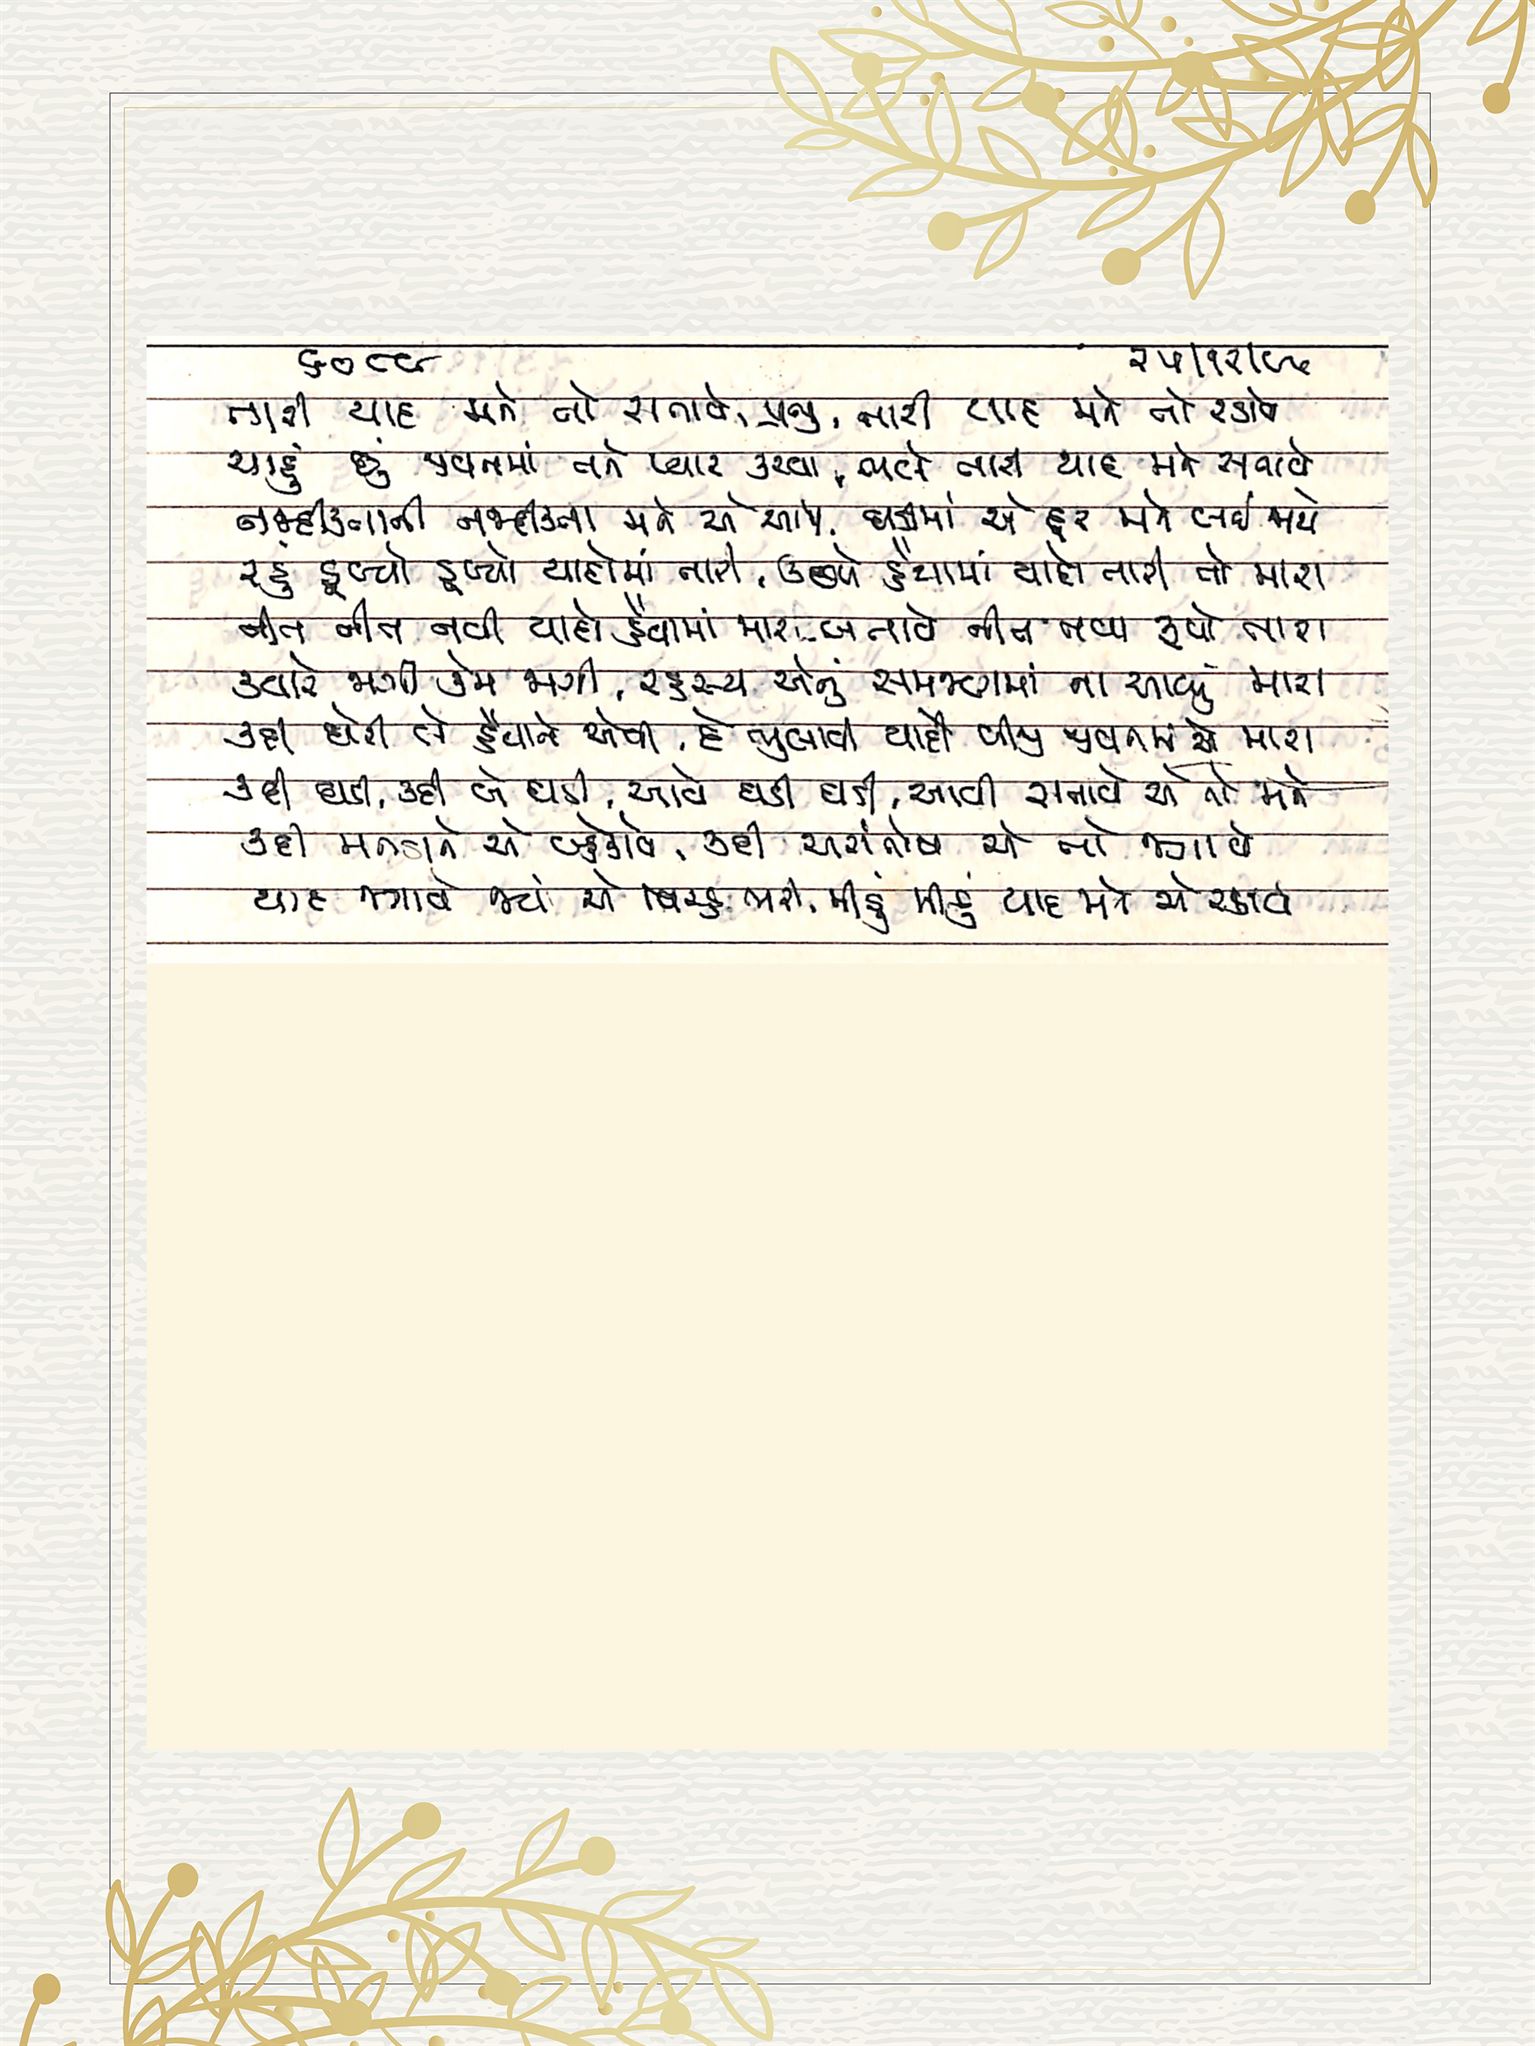 ૬૦૮૮ ૨૫/૧૨/૮૫
તારી યાદ મને તો સતાવે, પ્રભુ, તારી યાદ મને તો રડાવે
ચાહું છું જીવનમાં તને પ્યાર કરવા, ભલે તારી યાદ મને સતાવે
નજદીકતાની નજદીકતા મને એ આપે, ઘડીમાં એ દૂર મને લઈ જાયે
રહું ડૂબ્યો ડૂબ્યો યાદોમાં તારી, ઉછળે હૈયામાં યાદો તારી તો મારા
નીત નીત નવી યાદો હૈયામાં મારા બનાવે નીત નવા રૂપો તારા
ક્યારે જાગી કેમ જાગી, રહસ્ય એનું સમજણમાં ના આવ્યું મારા
કદી ઘેરી લે હૈયાને એવી, દે ભુલાવી યાદો બીજી જીવનમાં એ મારા
કદી ઘડી, કદી બે ઘડી, આવે ઘડી ઘડી, આવી સતાવે એ તો મને
કદી મનડાને એ બહેકાવે, કદી અસંતોષ એ તો જગાવે
યાદ જગાવે જ્યાં એ વિરહ ભરી, મીઠું મીઠું યાદ મને એ રડાવે